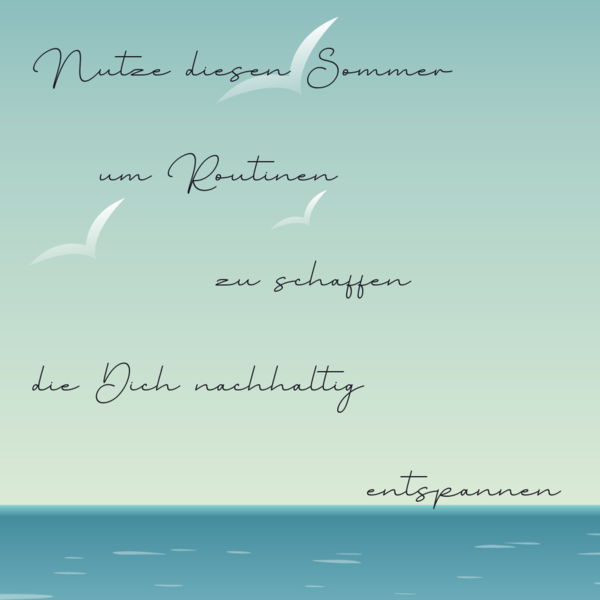 Nutze diesen Sommer
um Routinen
zu schaffen
die Dich nachhaltig
entspannen